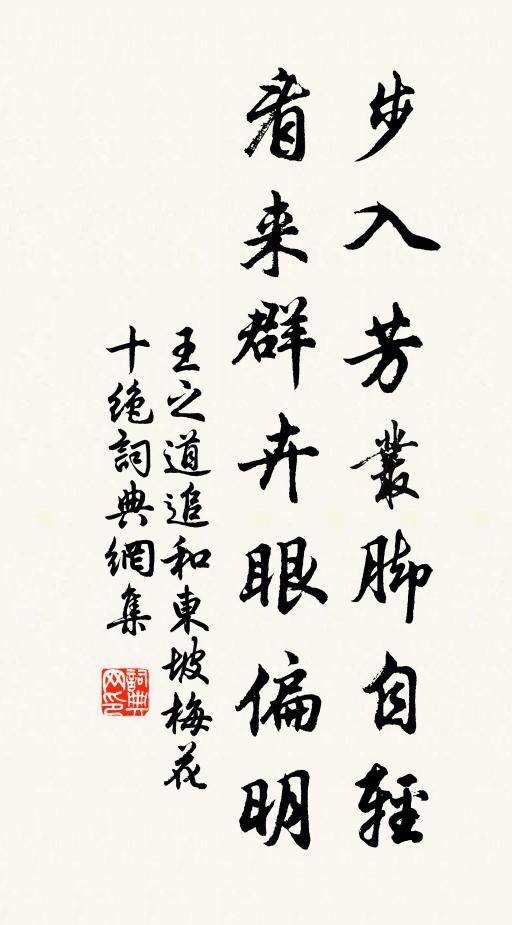 步入芳叢脚自輕
看来群卉眼偏明
王之道追和東坡梅花
十绝詞典網集
詞典网印